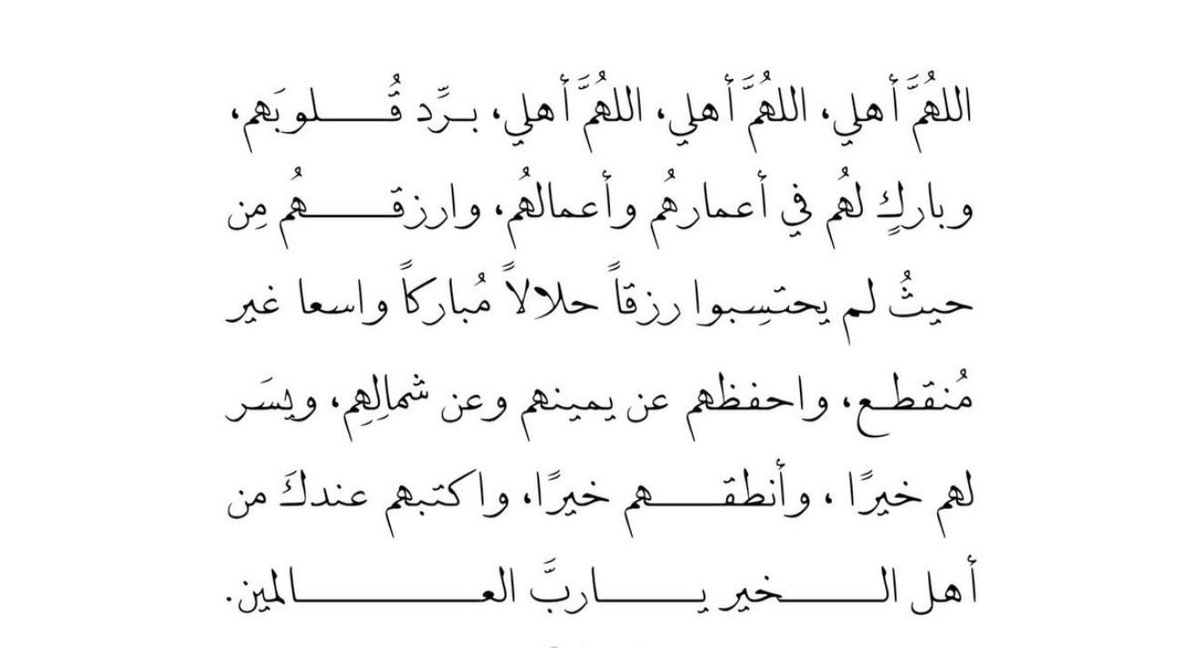 اللهُمَّ أهلي، اللهُمَّ أهلي، اللهُمَّ أهلي، بـرِّد قُـــلوبَهم،
وباركٍ لهُم في أعمارهُم وأعمالهُم، وارزقـــهُم مِن
حيثُ لم يحتسِبوا رزقاً حلالاً مُباركاً واسعا غير
مُنقطـع، واحفظهم عن يمينهم وعن شمالِهِم، ويسَر
لهم خيرًا ، وأنطقـــهم خيرًا، واكتبهم عندكَ من
أهل الـــخير يـــاربَّ العـــالمين.